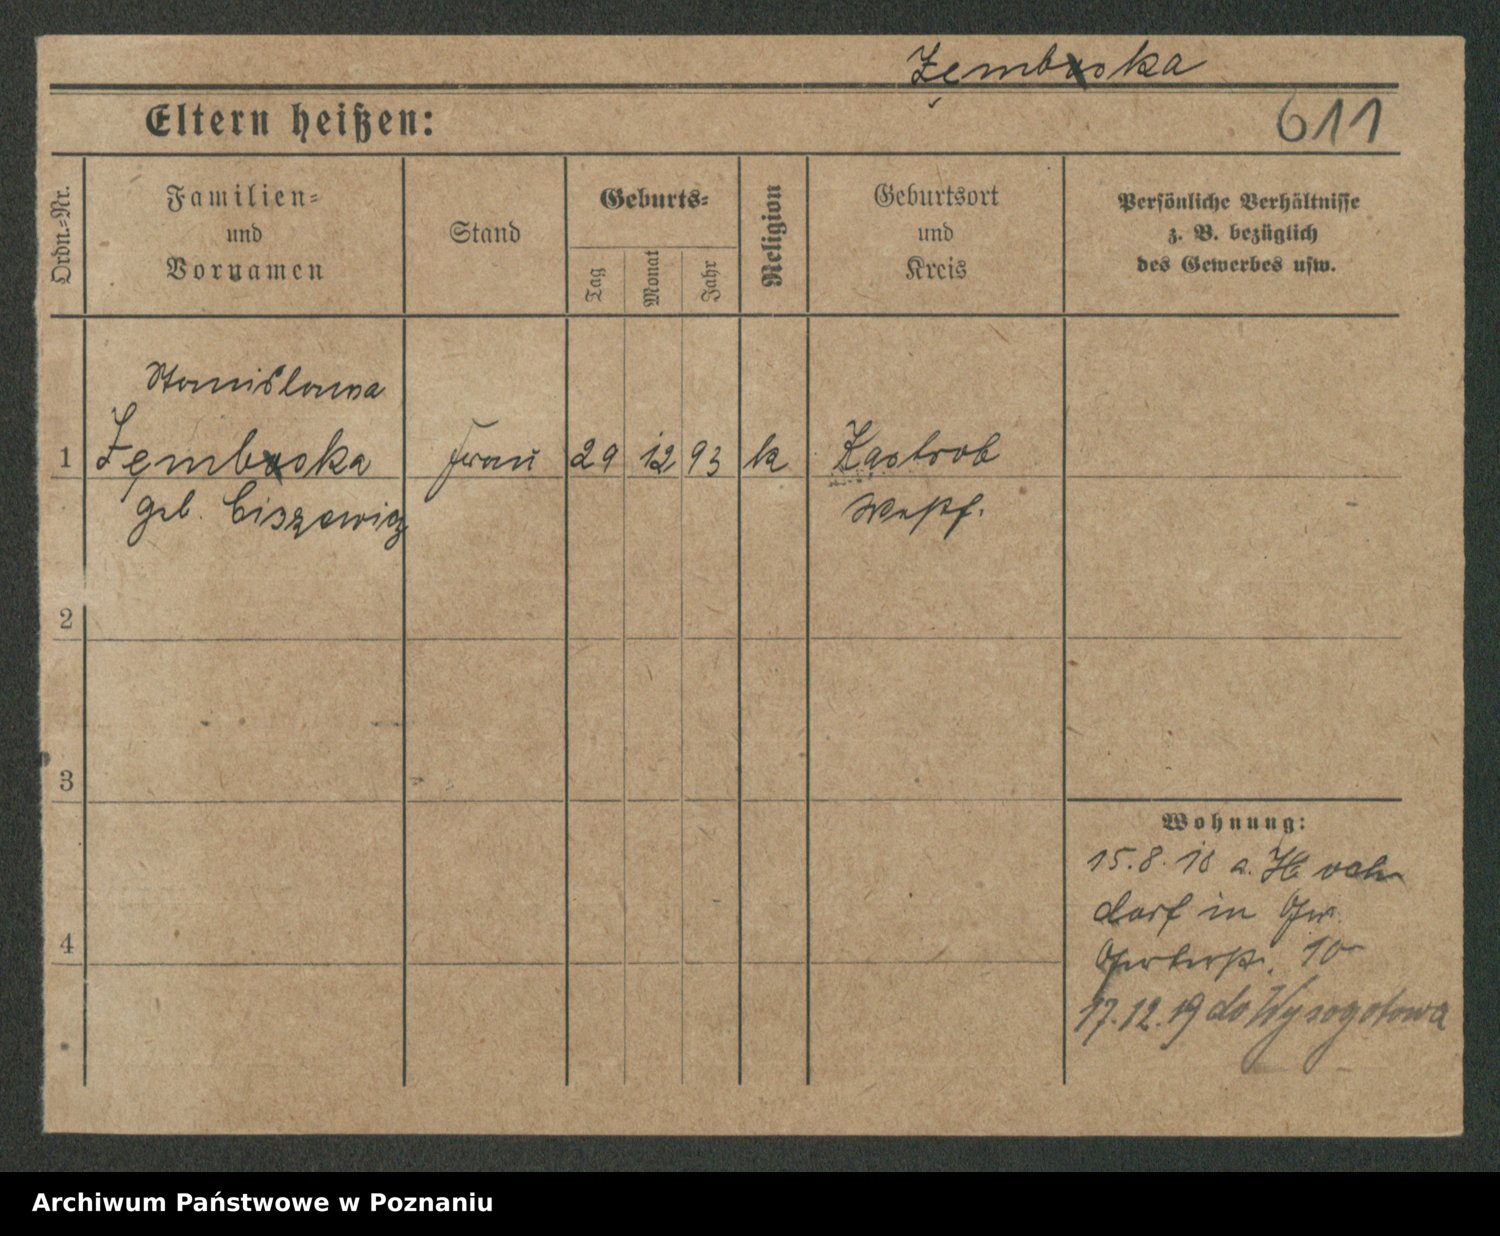 Zembska
Eltern heißen:
611
Ordn.-Nr.
Familien-
und
Vornamen
Stand
Geburts-
Tag
Monat
Jahr
Religion
Geburtsort
und
Kreis
Persönliche Verhältnisse
z. B. bezüglich
des Gewerbes usw.
Stanislawa
1 Zembska Frau 29 12 93 k Zastrob
geb. Ciszewicz Westf.
2
3
4
Wohnung:
15.8.18 a.
dorf in
10
17.12.19 do Wysogotowa
Archiwum Państwowe w Poznaniu